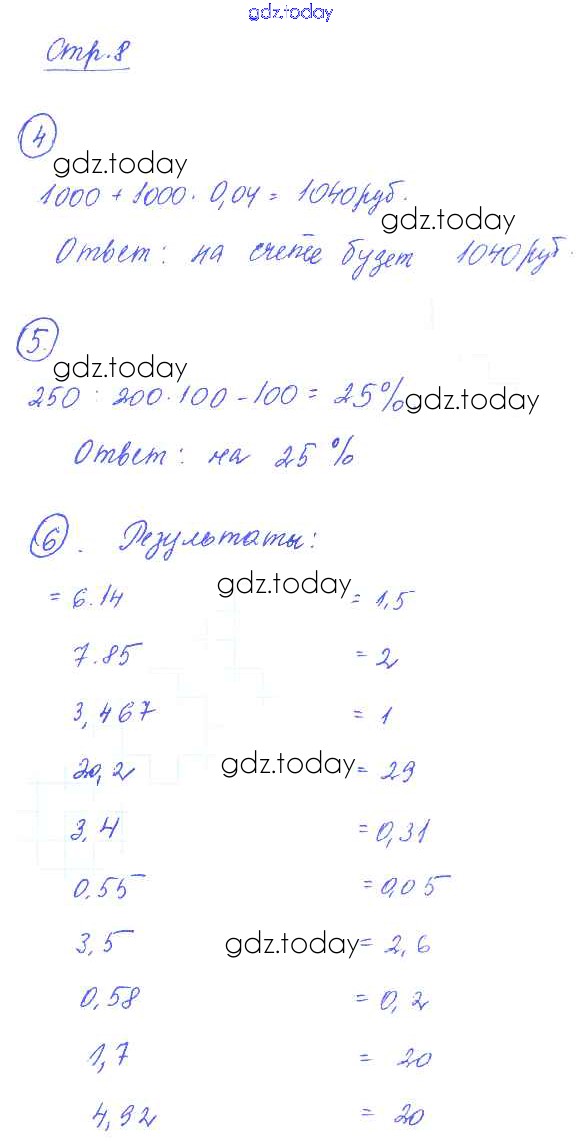 gdz.today
Стр. 8
4
gdz.today
1000 + 1000 · 0,04 = 1040 руб.
gdz.today
Ответ: на счете будет 1040 руб.
5.
gdz.today
250 : 200 · 100 - 100 = 25% gdz.today
Ответ: на 25 %
6. Результаты:
= 6.14 gdz.today = 1,5
7.85 = 2
3,467 = 1
20,2 gdz.today = 29
3,4 = 0,31
0,55 = 0,05
3,5 gdz.today = 2,6
0,58 = 0,2
1,7 = 20
4,92 = 20